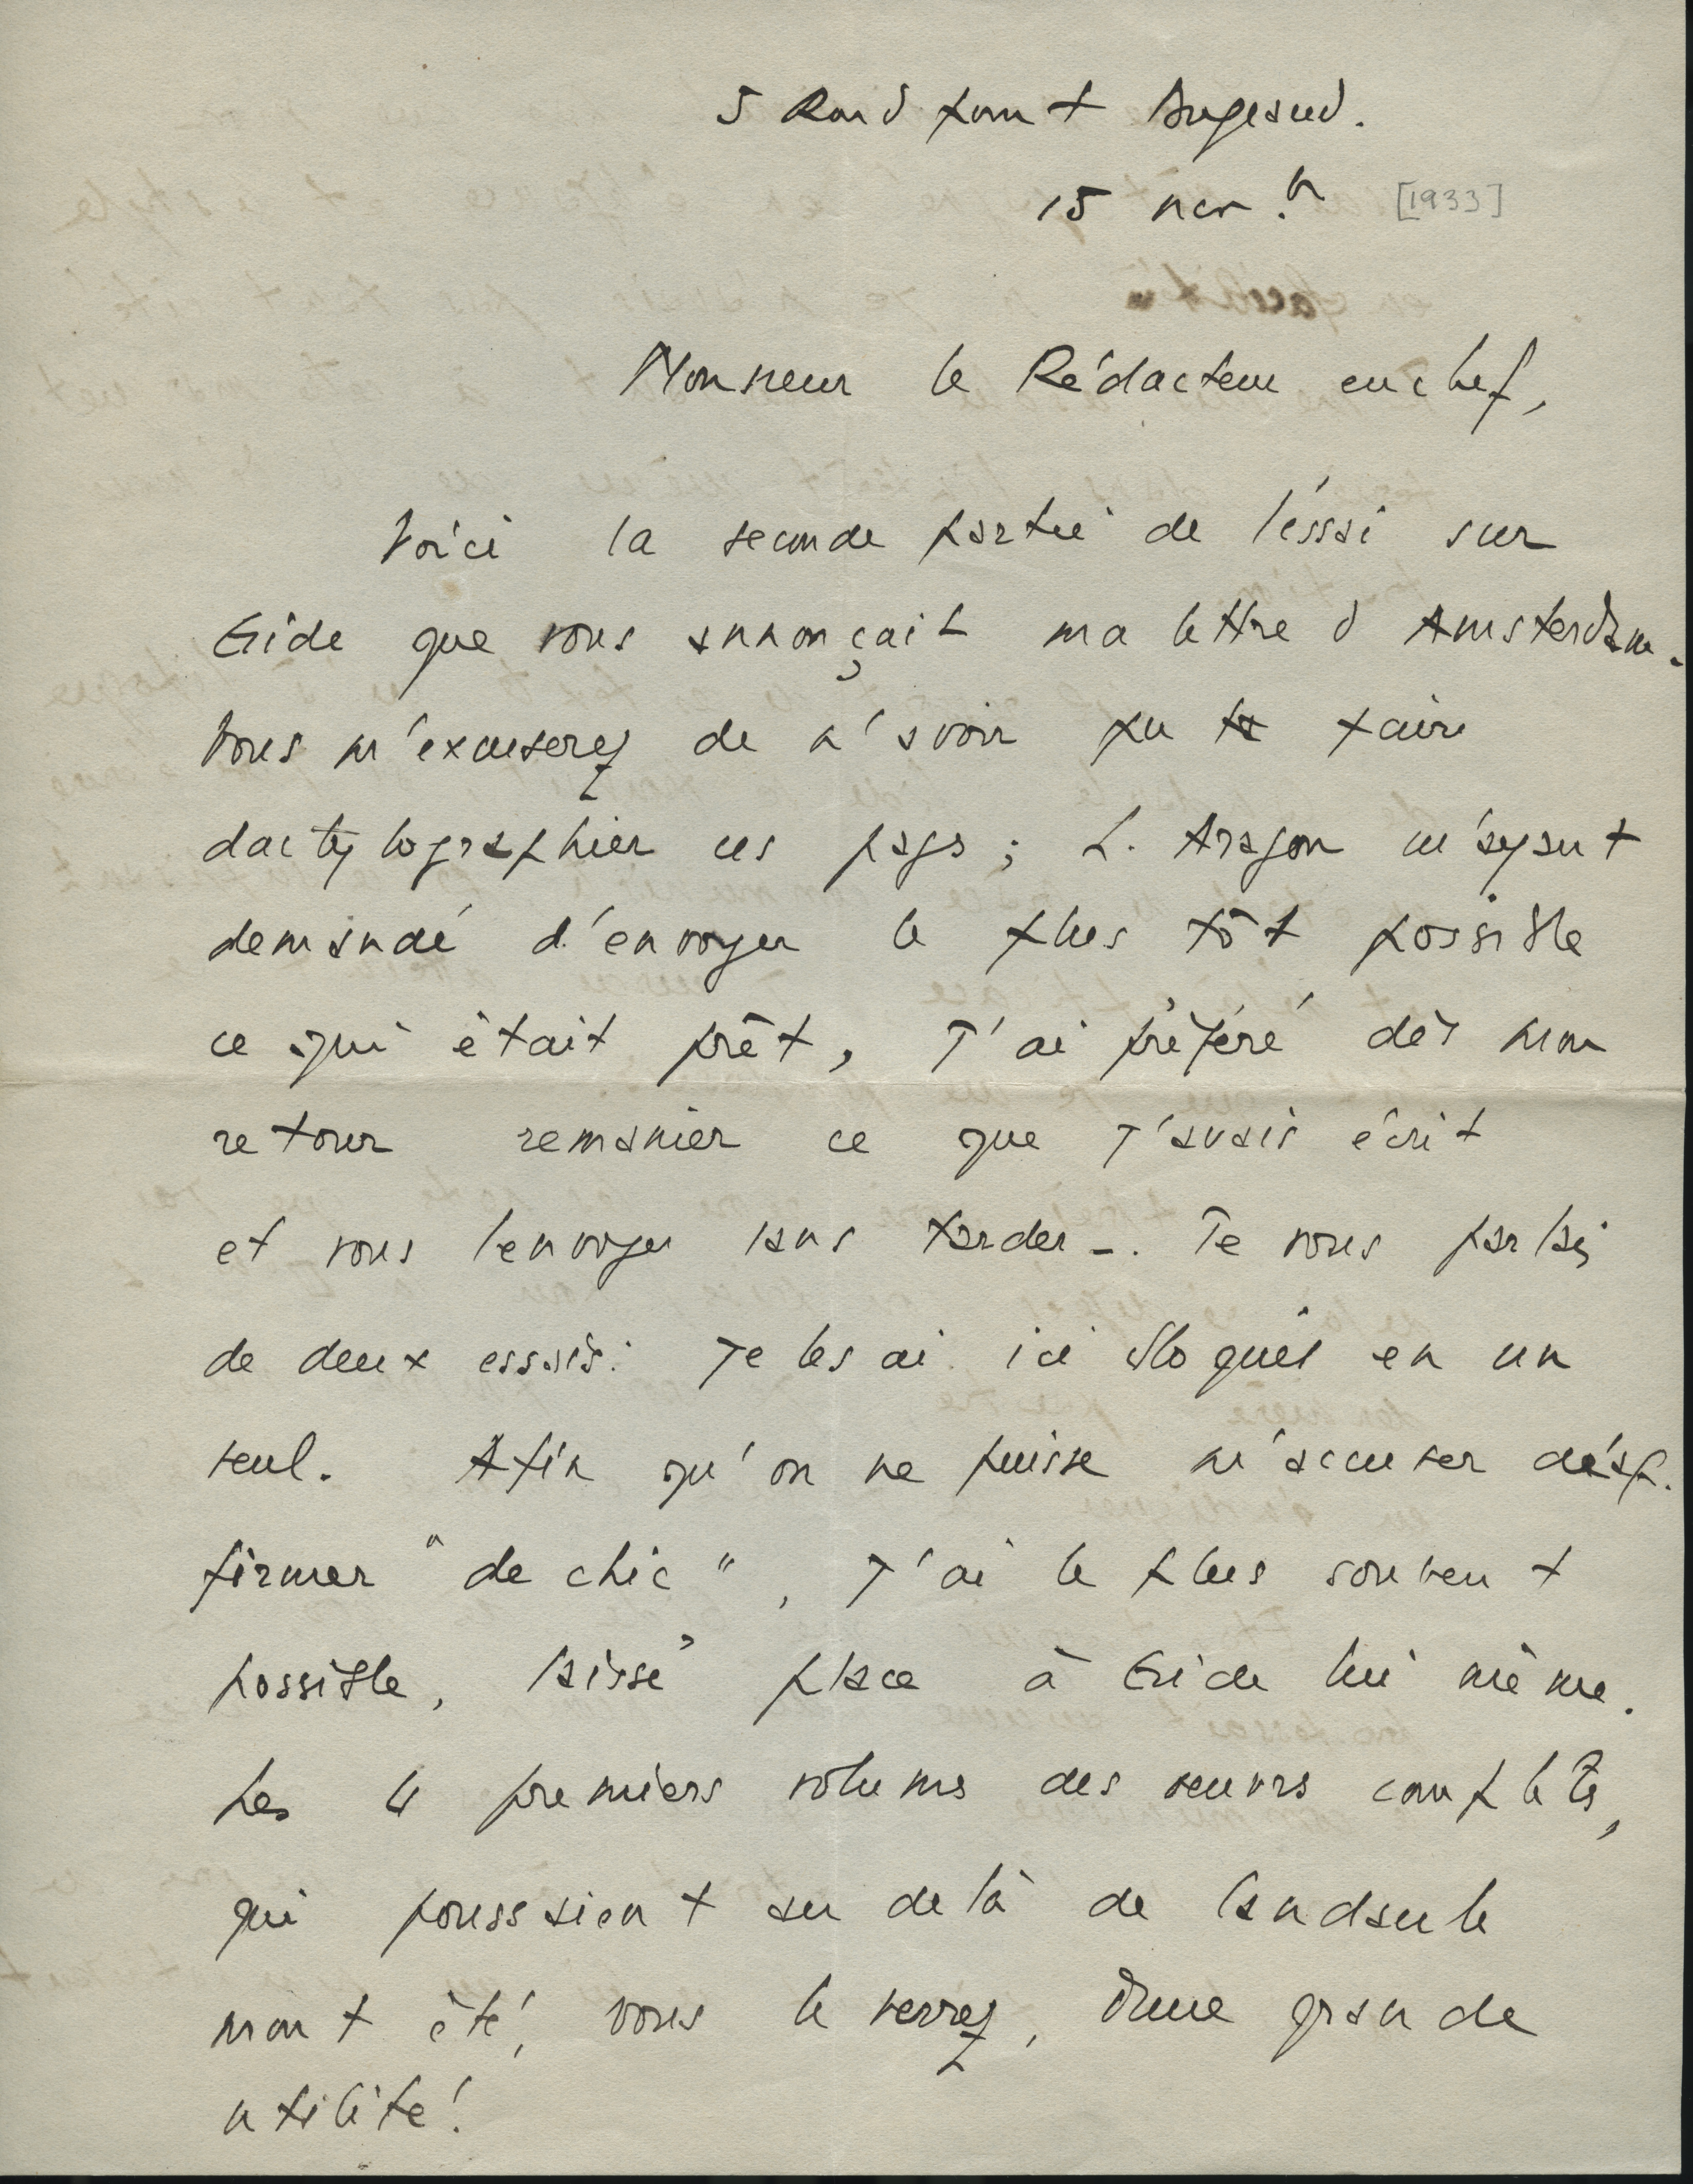 5 Rond point Bugeaud.
15 nov.bre [1933]
Monsieur le Rédacteur en chef,
Voici la seconde partie de l'essai sur
Gide que vous annonçait ma lettre d'Amsterdam.
Vous m'excuserez de n'avoir pu faire
dactylographier ces pages ; L. Aragon m'ayant
demandé d'envoyer le plus tôt possible
ce qui était prêt, j'ai préféré dès mon
retour remanier ce que j'avais écrit
et vous l'envoyer sans tarder -. Je vous parlai
de deux essais : je les ai ici bloqués en un
seul. Afin qu'on ne puisse m'accuser d'af-
firmer "de chic", j'ai le plus souvent
possible, laissé place à Gide lui même.
Les 4 premiers volumes des œuvres complètes,
qui poussaient au delà de
m'ont été, vous le verrez, d'une grande
utilité !